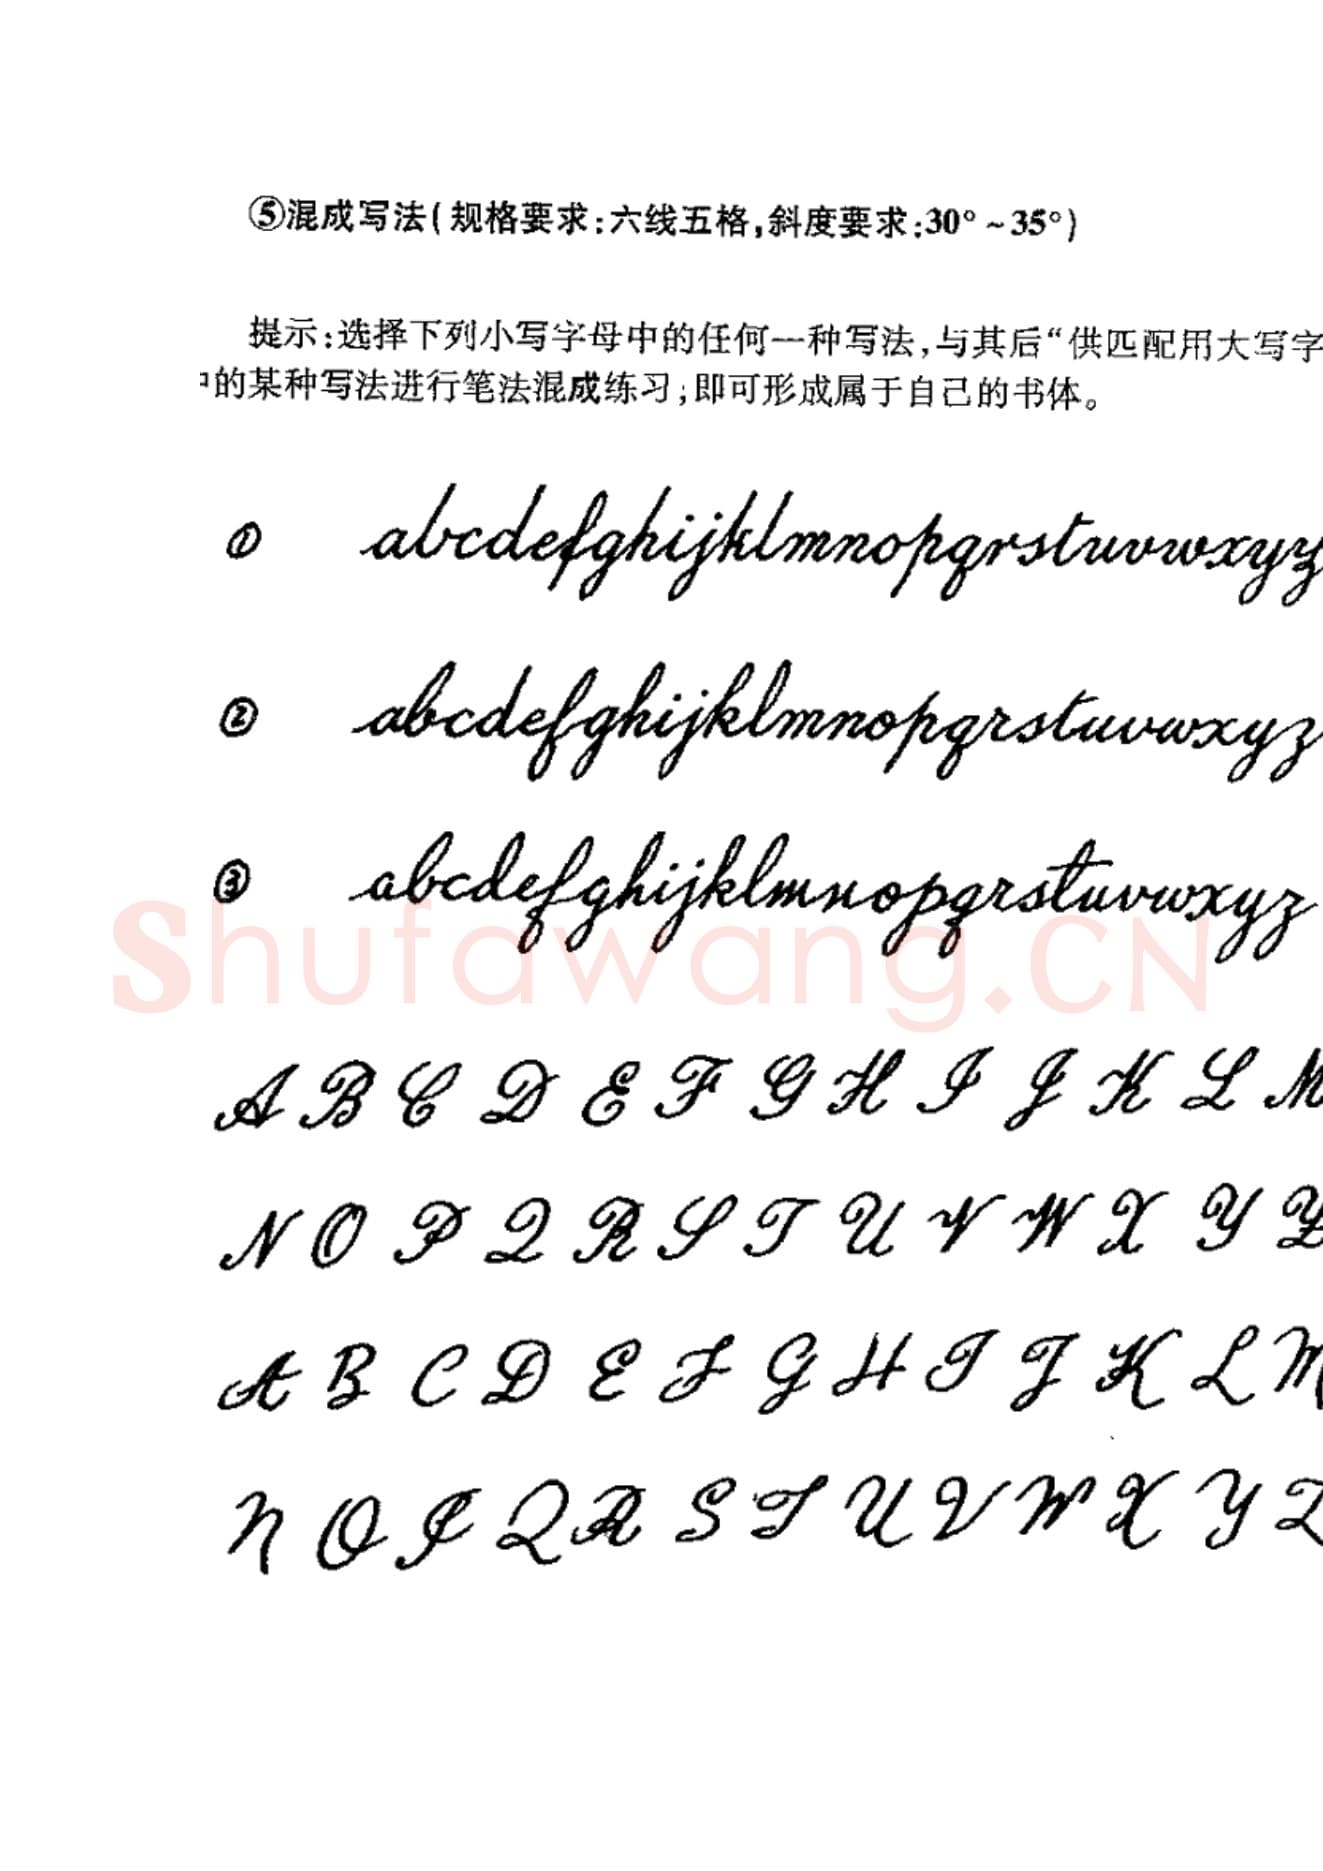 ⑤混成写法(规格要求:六线五格,斜度要求:30°~35°)
提示:选择下列小写字母中的任何一种写法,与其后“供匹配用大写字
中的某种写法进行笔法混成练习;即可形成属于自己的书体。
① abcdefghijklmnopqrstuvwxyz
② abcdefghijklmnopqrstuvwxyz
③ abcdefghijklmnopqrstuvwxyz
Shufawang.CN
A B C D E F G H I J K L M
N O P Q R S T U V W X Y Z
A B C D E F G H I J K L M
N O P Q R S T U V W X Y Z